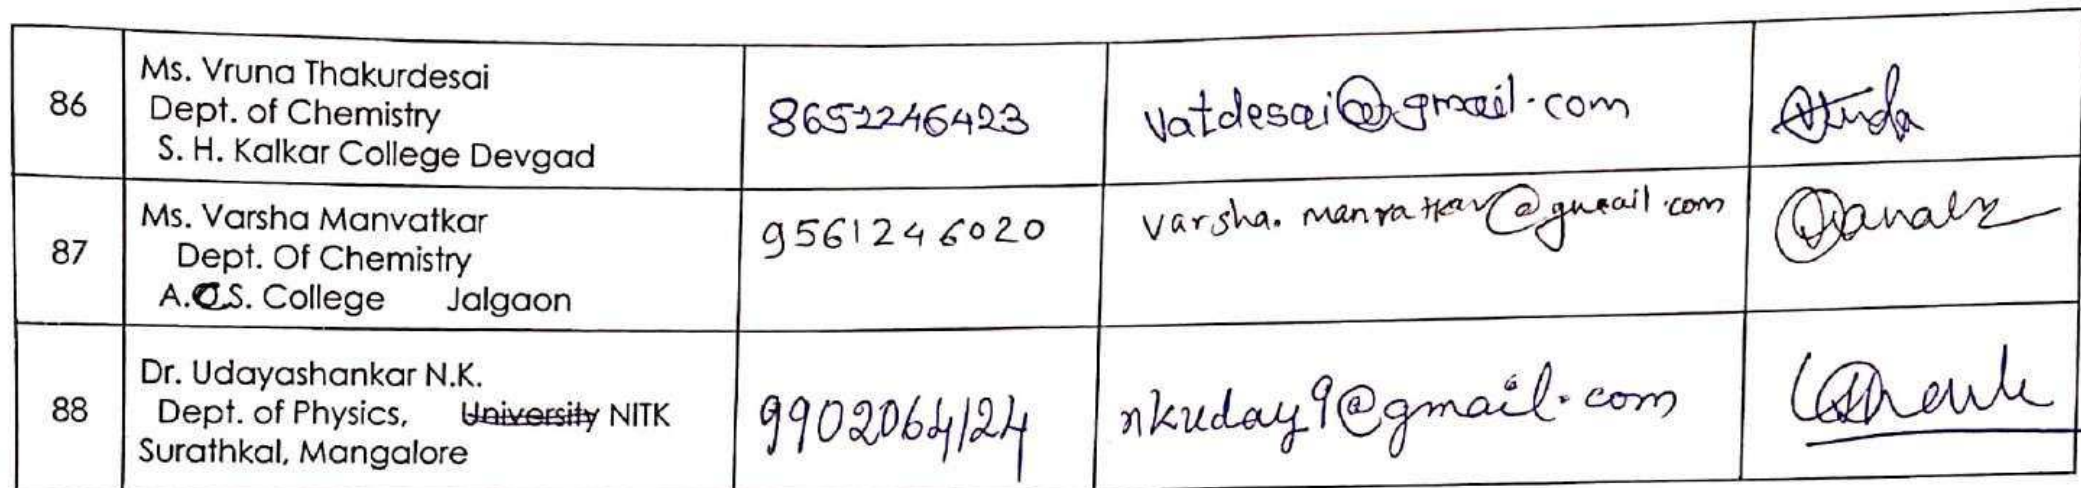 86
Ms. Vruna Thakurdesai
Dept. of Chemistry
S. H. Kalkar College Devgad
8652246423
vatdesai@gmail.com
87
Ms. Varsha Manvatkar
Dept. Of Chemistry
A.C.S. College Jalgaon
9561246020
varsha.manvatkar@gmail.com
88
Dr. Udayashankar N.K.
Dept. of Physics, University NITK
Surathkal, Mangalore
9902064124
nkuday9@gmail.com